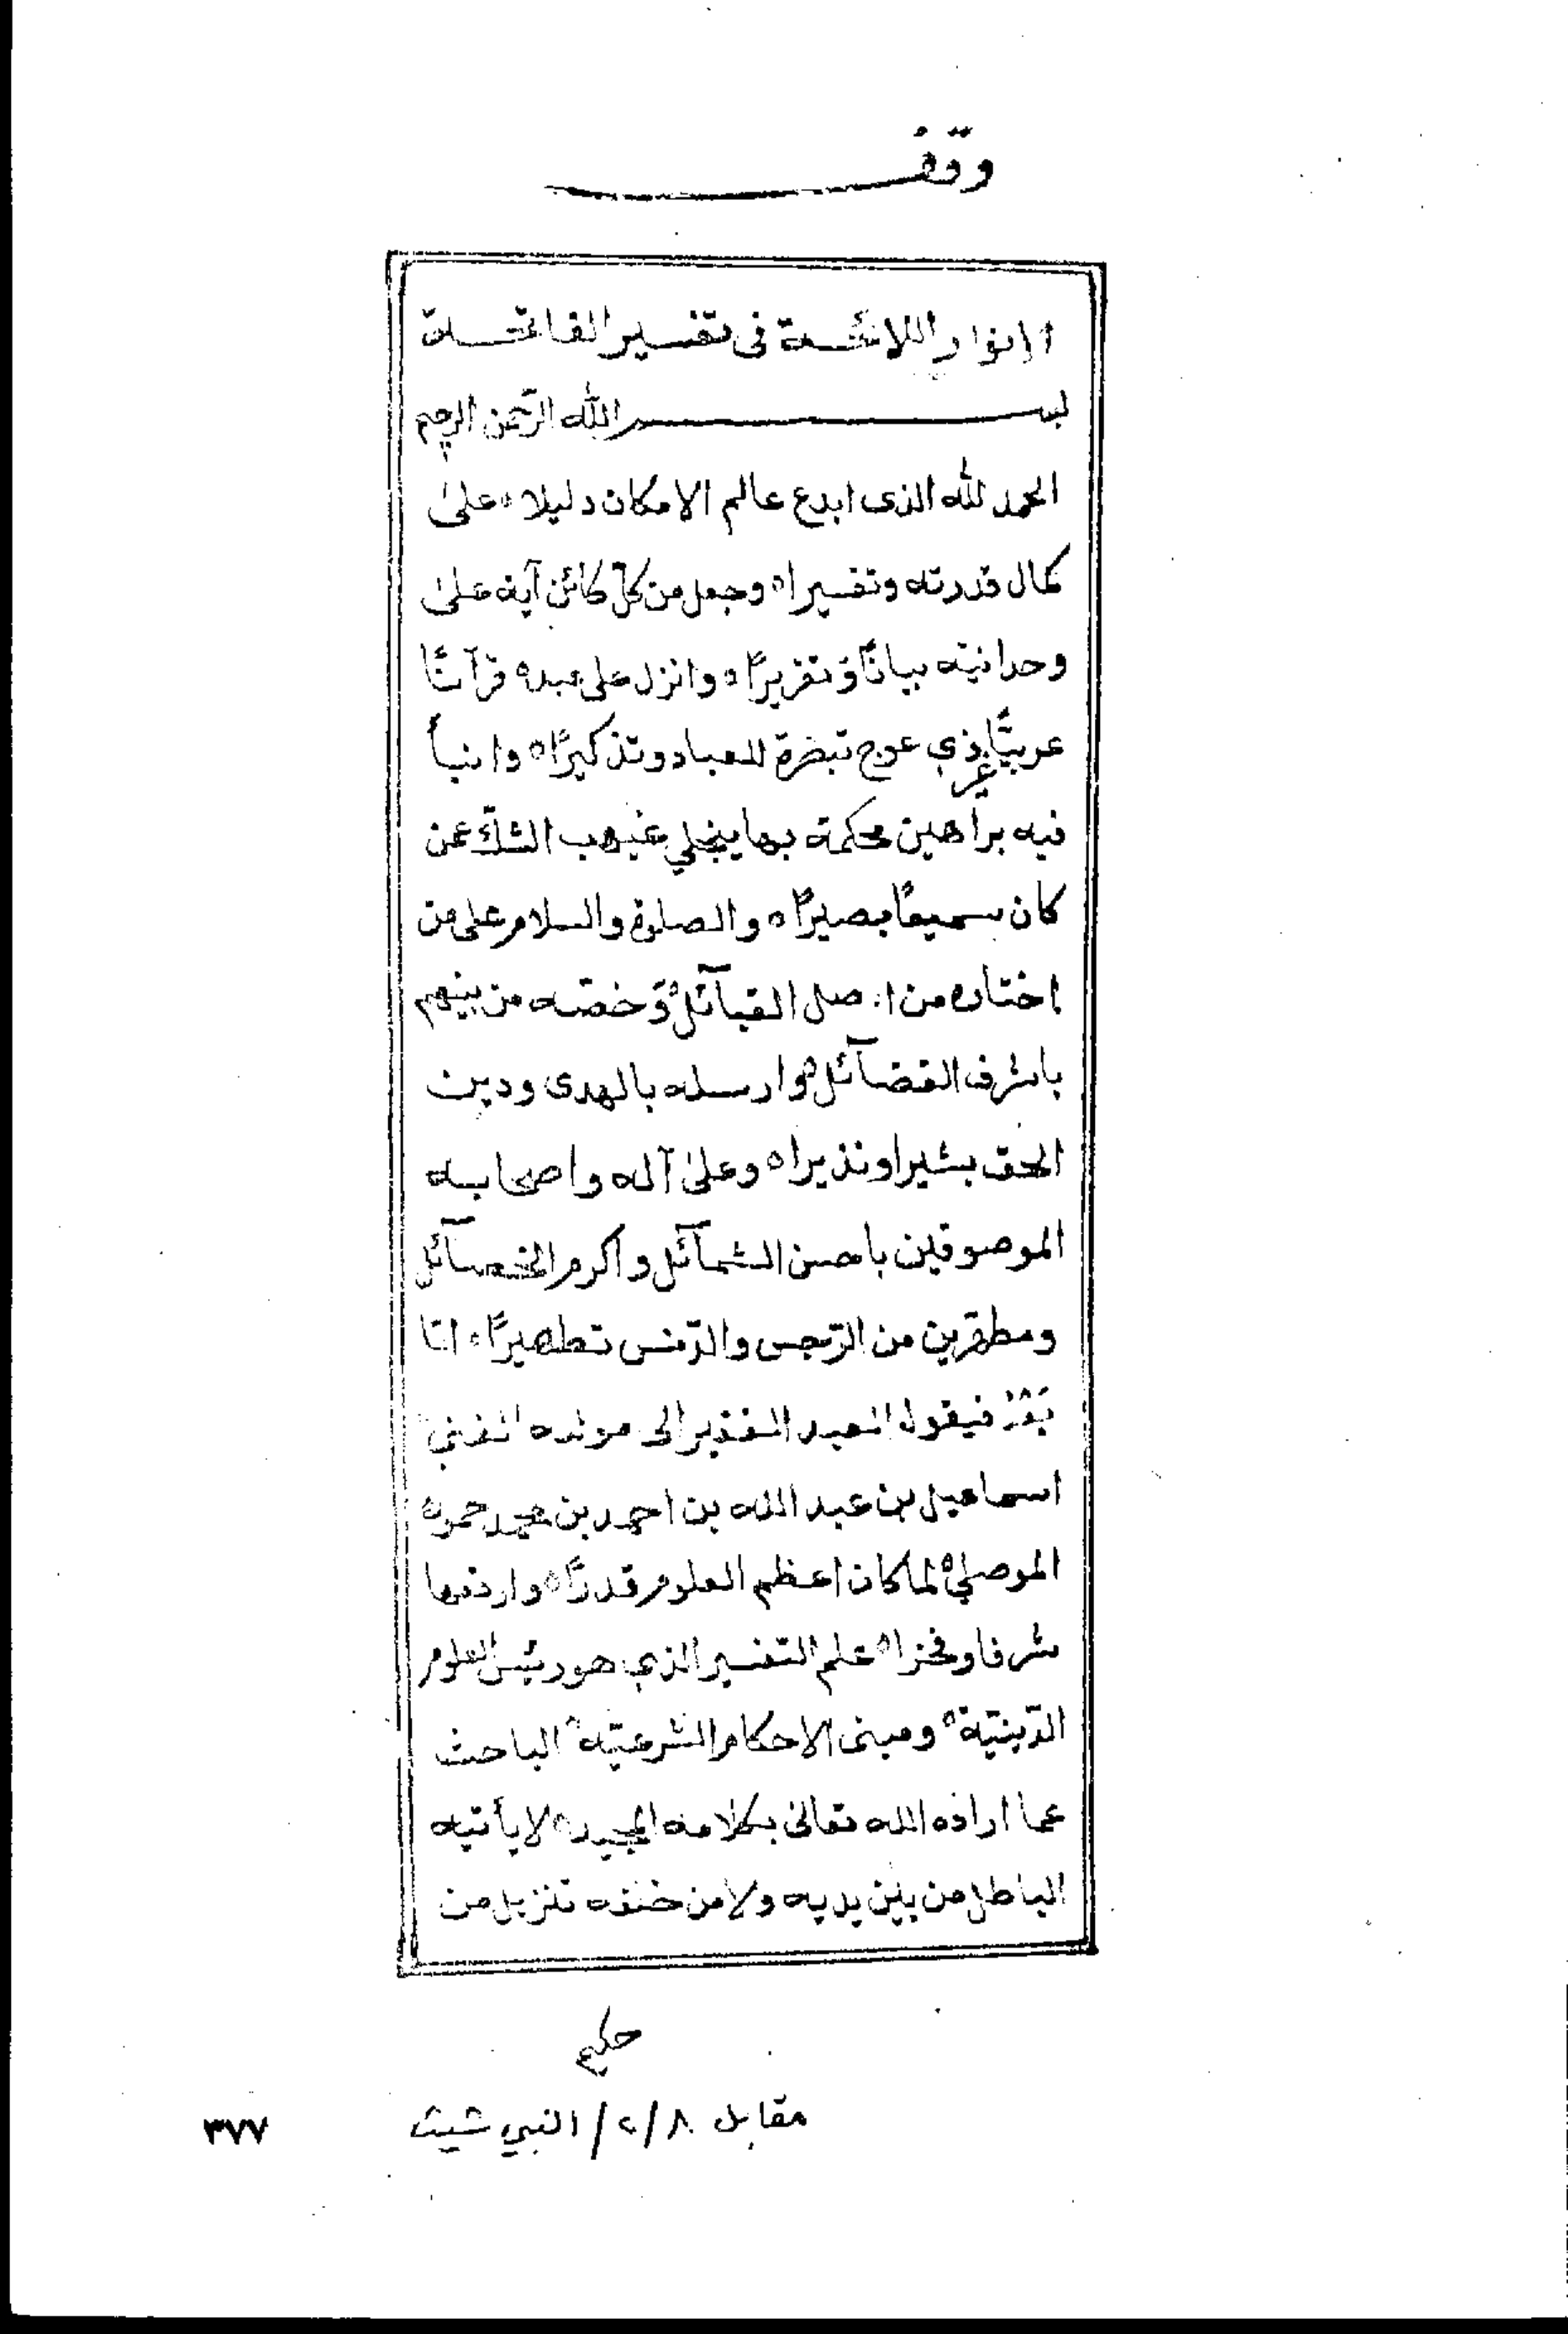 وقف
الانوار اللائحة فى تفسير الفاتحة
بسم الله الرّحمن الرحيم
الحمد لله الذى ابدع عالم الامكان دليلا ٥ على
كمال قدرته وتفسيرا ٥ وجعل من كلّ كائن آية على
وحدانيته بيانًا وَتقريرًا ٥ وانزل على عبده قرآنًا
عربيًّا غير ذي عوج تبصرة للعباد وتذكيرًا ٥ وانبأ
فيه براهين محكمة بها ينجلي غيهب الشكّ عن
كان سميعًا بصيرًا ٥ والصلوة والسلام على من
اختاره من اصل القبآئل ٥ وَخصّه من بينهم
باشرف الفضآئل ٥ وارسله بالهدى ودين
الحق بشيرا ونذيرا ٥ وعلى آله واصحابه
الموصوفين باحسن الشمآئل واكرم الخصآئل
ومطهّرين من الرّجس والدّنس تطهيرًا ٥ امّا
بَعْدُ فيقول العبد الفقير الى مولاه الغني
اسماعيل بن عبد الله بن احمد بن محمد حموه
الموصلي ٥ لما كان اعظم العلوم قدرًا ٥ وارفعها
شرفا وفخرا ٥ علم التفسير الذي هو رئيس العلوم
الدّينيّة ٥ ومبنى الاحكام الشرعيّه ٥ الباحث
عما اراده الله تعالى بكلامه المجيد ٥ لا يأتيه
الباطل من بين يديه ولا من خلفه تنزيل من
حكيم
مقابل ٨/٢/ النبي شيث
٣٧٧